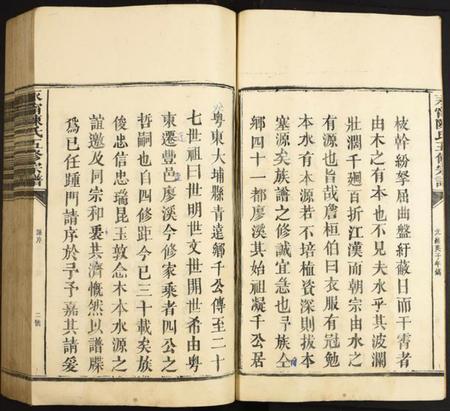 枝幹紛拏屈曲盤紆蔽日而干霄者
由木之有本也不見夫水乎其波瀾
壯濶千廻百折江漢而朝宗由水之
有源也旨哉詹桓伯曰衣服有冠冕
本水有本源若不培植資深則拔本
塞源矣族譜之修誠宜急也予族仝
鄉四十一都廖溪其始祖凝千公居
粵東大埔縣青遠鄉千公傳至二十
七世祖曰世明世文世開世希由粵
東遷豐邑廖溪今修家乘者四公之
哲嗣也自四修距今已三十載矣族
俊忠信忠瑞昆玉敦念木本水源之
誼邀及同宗和裏其濟慨然以譜牒
為已任踵門請序於予予嘉其請爰
永甯陳氏五修宗譜
譜序
二號